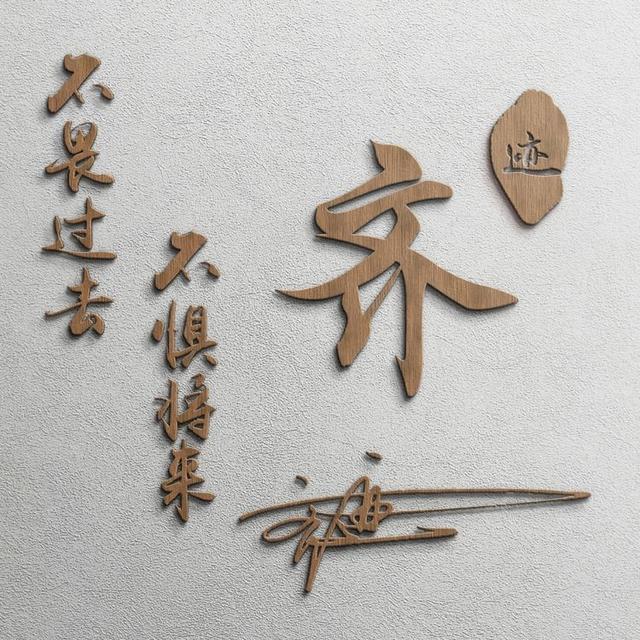 不畏过去
不惧将来
齐
迹